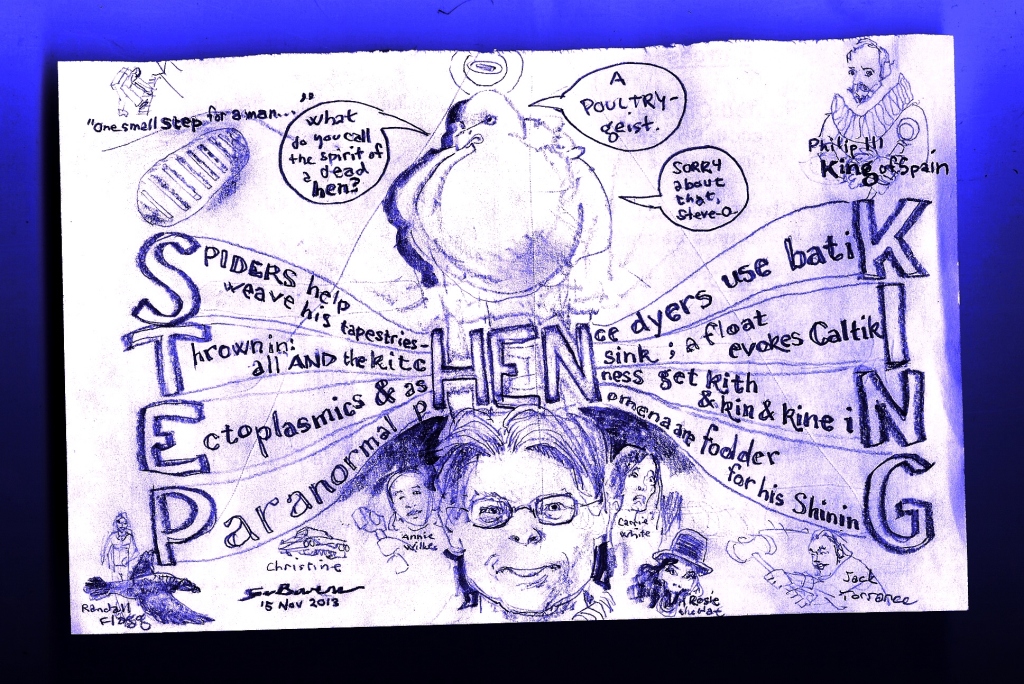 "One small step for a man..."
What
do you call
the spirit of
a dead
hen?
A
POULTRY-
geist.
SORRY
about
that,
Steve-O-
Philip III
King of Spain
SPIDERS help
weave his tapestries-
HENce dyers use batiK
Thrown in:
all AND the kitc
HEN
sink ; a float
evokes Caltik
I
Ectoplasmics & as
HEN
ness get kith
& kin & kine i
N
Paranormal p
HEN
omena are fodder
for his Shinin
G
Annie
Wilkes
Carrie
White
Christine
15 Nov 2013
Randall
Flagg
Rosie
the Hat
Jack
Torrance